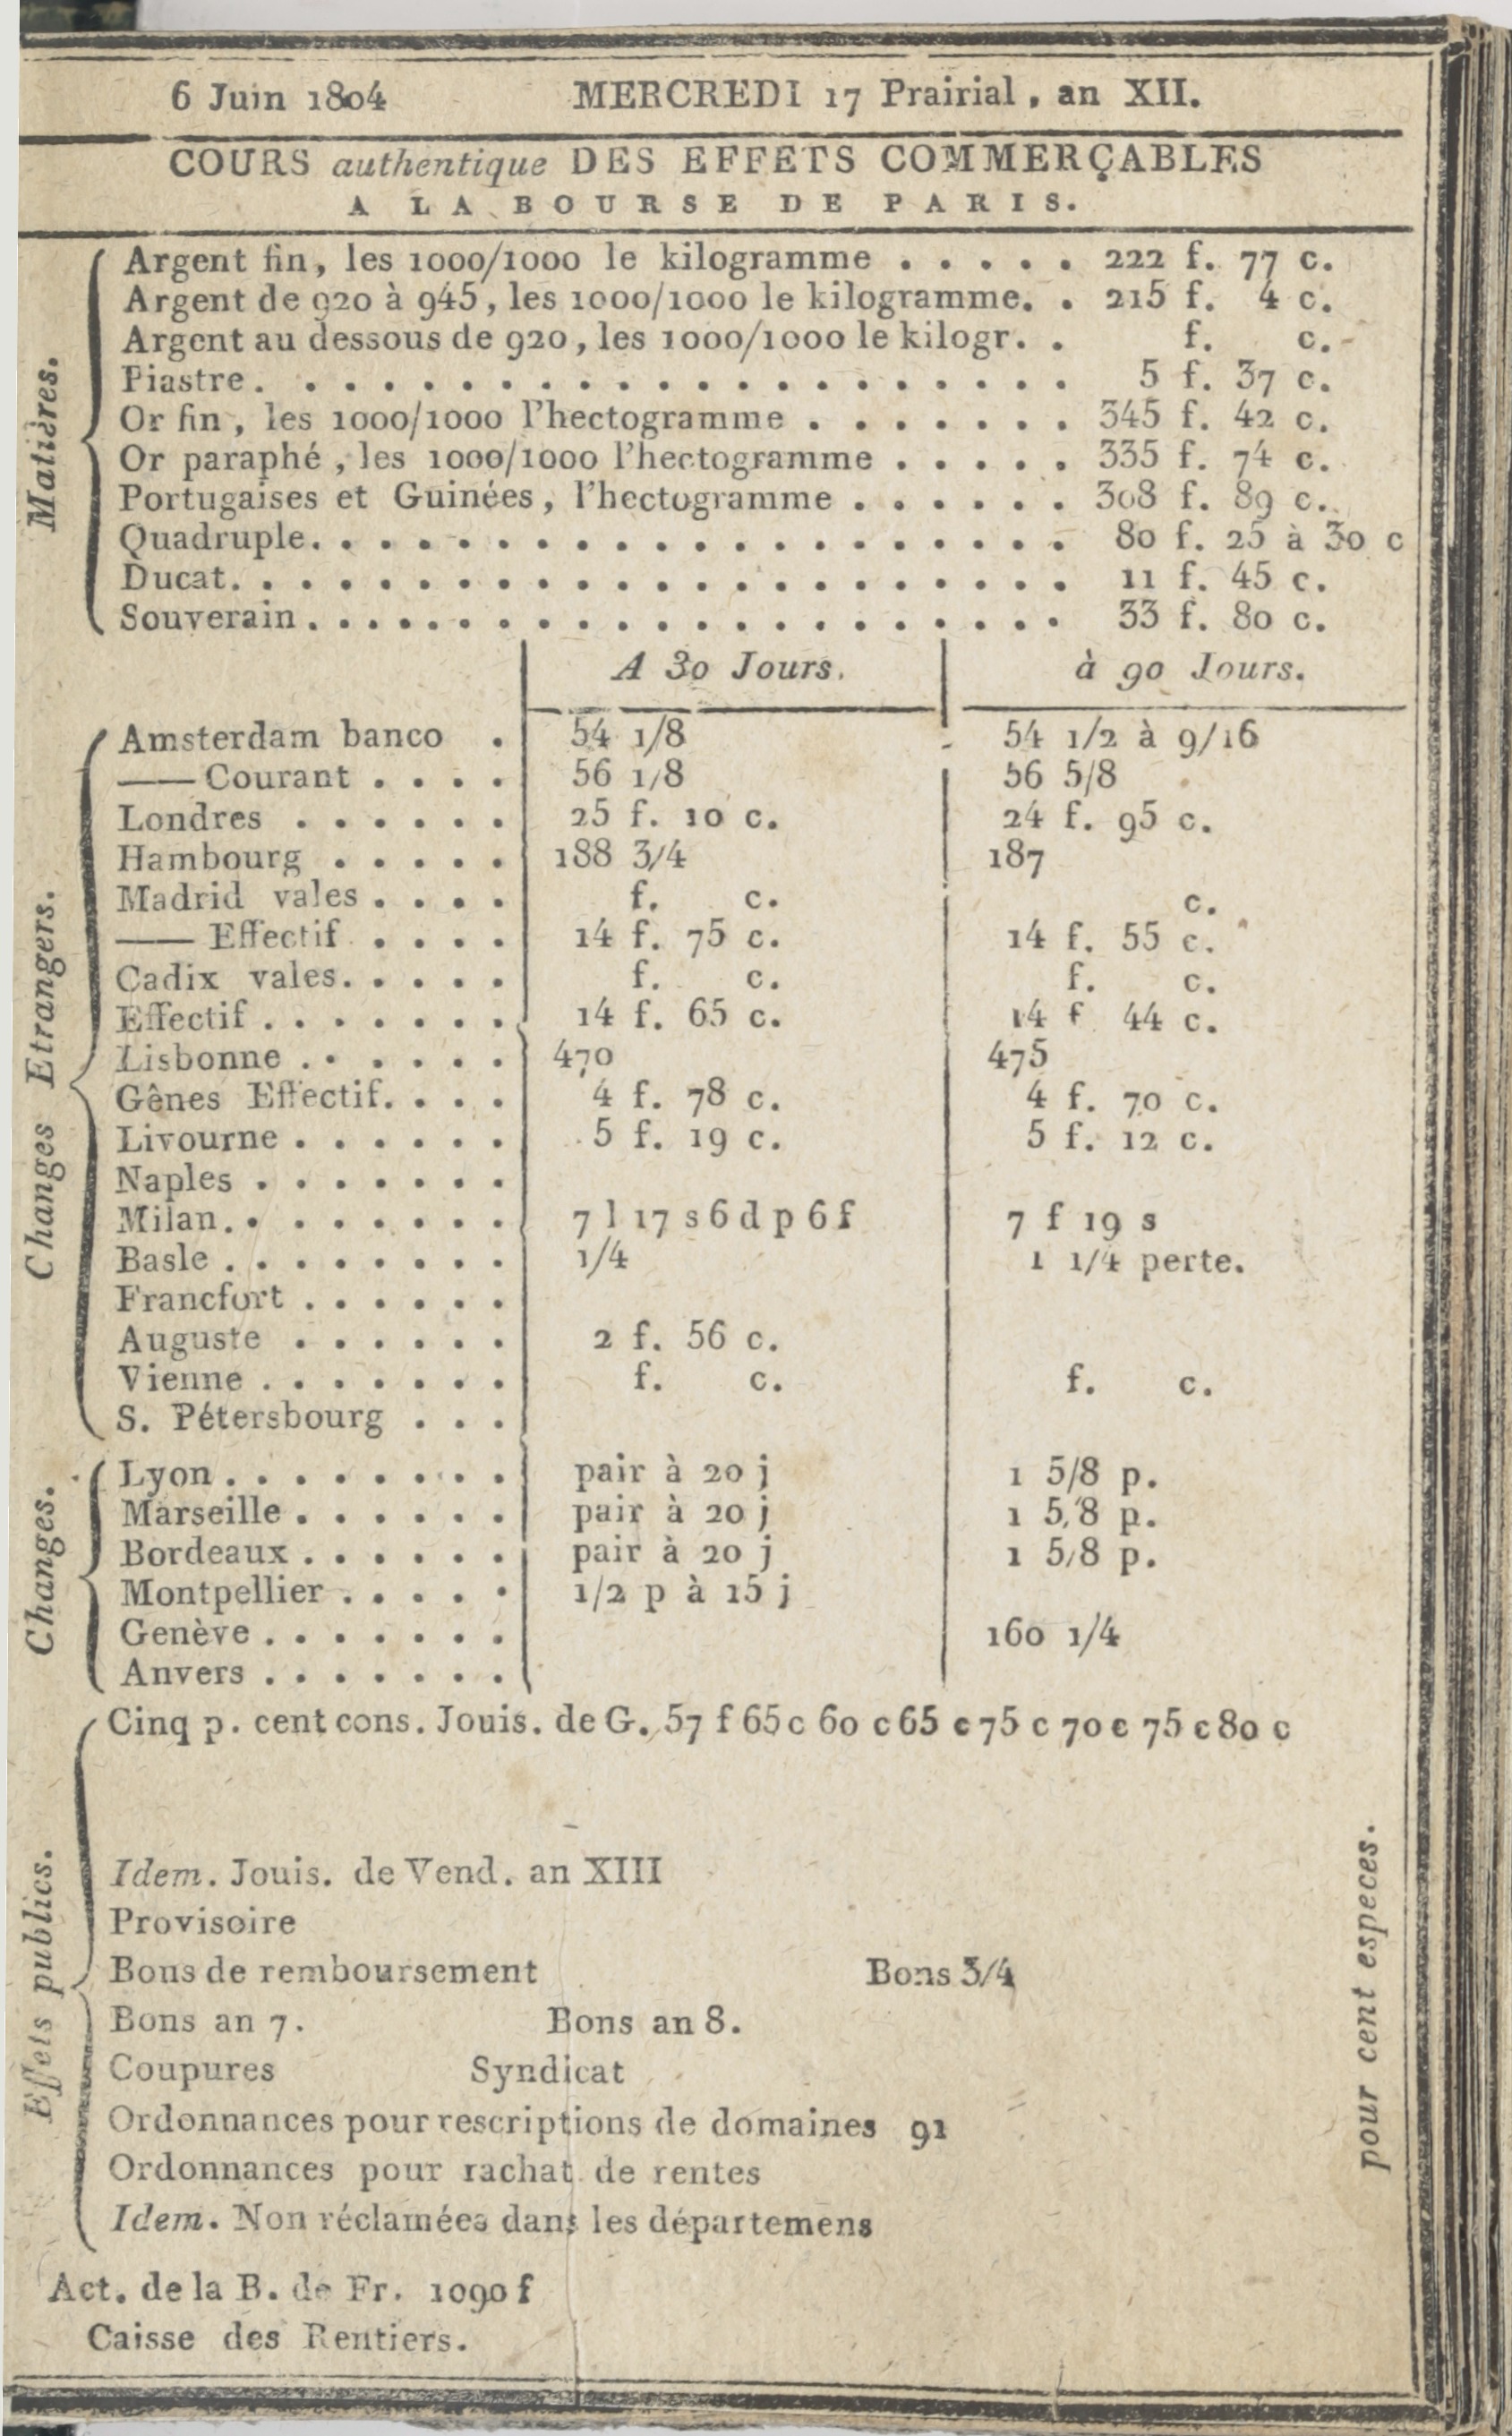 6 Juin 1804 MERCREDI 17 Prairial, an XII.
COURS authentique DES EFFETS COMMERÇABLES
A LA BOURSE DE PARIS.
Matières.
Argent fin, les 1000/1000 le kilogramme . . . . . 222 f. 77 c.
Argent de 920 à 945, les 1000/1000 le kilogramme. . 215 f. 4 c.
Argent au dessous de 920, les 1000/1000 le kilogr. . f. c.
Piastre. . . . . . . . . . . . . . . . . . . . . 5 f. 37 c.
Or fin, les 1000/1000 l'hectogramme . . . . . . . 345 f. 42 c.
Or paraphé, les 1000/1000 l'hectogramme . . . . . 335 f. 74 c.
Portugaises et Guinées, l'hectogramme . . . . . . 308 f. 89 c.
Quadruple. . . . . . . . . . . . . . . . . . . . 80 f. 25 à 30 c
Ducat. . . . . . . . . . . . . . . . . . . . . . 11 f. 45 c.
Souverain . . . . . . . . . . . . . . . . . . . . 33 f. 80 c.
A 30 Jours. à 90 Jours.
Changes Etrangers.
Amsterdam banco . 54 1/8 54 1/2 à 9/16
—— Courant . . . . 56 1/8 56 5/8
Londres . . . . . . 25 f. 10 c. 24 f. 95 c.
Hambourg . . . . . 188 3/4 187
Madrid vales . . . . f. c. c.
—— Effectif . . . . 14 f. 75 c. 14 f. 55 c.
Cadix vales. . . . . f. c. f. c.
Effectif . . . . . . . 14 f. 65 c. 14 f 44 c.
Lisbonne . . . . . . 470 475
Gênes Effectif. . . . 4 f. 78 c. 4 f. 70 c.
Livourne . . . . . . 5 f. 19 c. 5 f. 12 c.
Naples . . . . . . .
Milan. . . . . . . . 7 l 17 s 6 d p 6 f 7 f 19 s
Basle . . . . . . . . 1/4 1 1/4 perte.
Francfort . . . . . .
Auguste . . . . . . 2 f. 56 c.
Vienne . . . . . . . f. c. f. c.
S. Pétersbourg . . .
Changes.
Lyon . . . . . . . . pair à 20 j 1 5/8 p.
Marseille . . . . . . pair à 20 j 1 5/8 p.
Bordeaux . . . . . . pair à 20 j 1 5/8 p.
Montpellier . . . . . 1/2 p à 15 j
Genève . . . . . . . 160 1/4
Anvers . . . . . . .
Effets publics.
Cinq p. cent cons. Jouis. de G. 57 f 65 c 60 c 65 c 75 c 70 c 75 c 80 c
Idem. Jouis. de Vend. an XIII
Provisoire
Bons de remboursement Bons 3/4
Bons an 7. Bons an 8.
Coupures Syndicat
Ordonnances pour rescriptions de domaines 91
Ordonnances pour rachat de rentes
Idem. Non réclamées dans les départemens
pour cent especes.
Act. de la B. de Fr. 1090 f
Caisse des Rentiers.